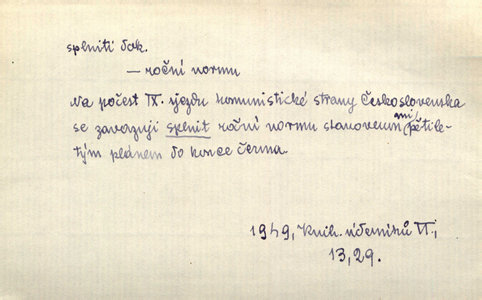 splniti dok.
— roční normu
Na počest IX. sjezdu komunistické strany Československa
se zavazuji splnit roční normu stanovenou pětile-
tým plánem do konce června.
1949, Knih. úderníků VI,
13, 29.